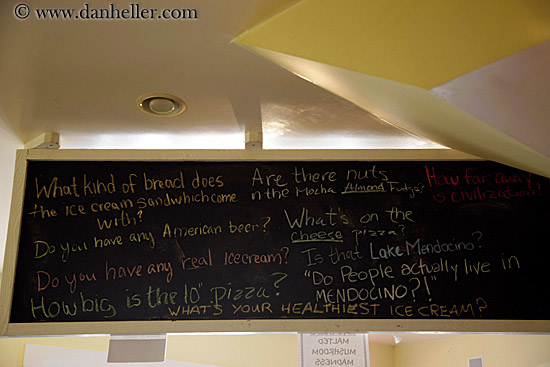 © www.danheller.com
What kind of bread does
the ice cream sandwhich come
with?
Do you have any American beer?
Do you have any real Icecream?
How big is the 10" pizza?
Are there nuts
in the Mocha Almond Fudge?
What's on the
cheese pizza?
Is that Lake Mendocino?
"Do People actually live in
MENDOCINO?!"
How far away
is civilization?!
WHAT'S YOUR HEALTHIEST ICE CREAM?
MALTED
MUSHROOM
MADNESS